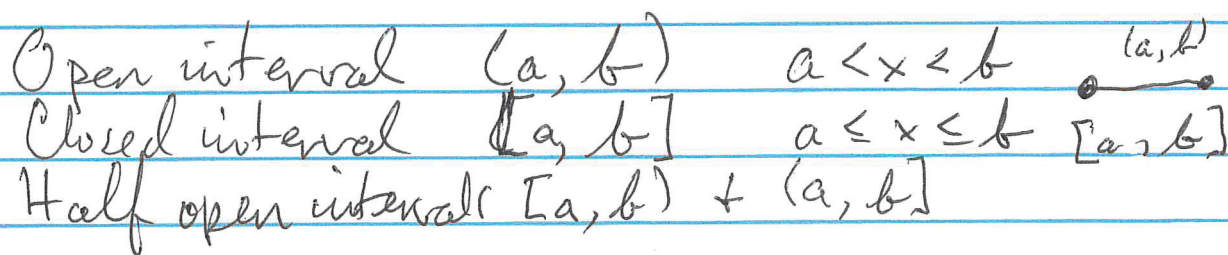 Open interval (a, b) a < x < b (a, b)
Closed interval [a, b] a ≤ x ≤ b [a, b]
Half open intervals [a, b) + (a, b]